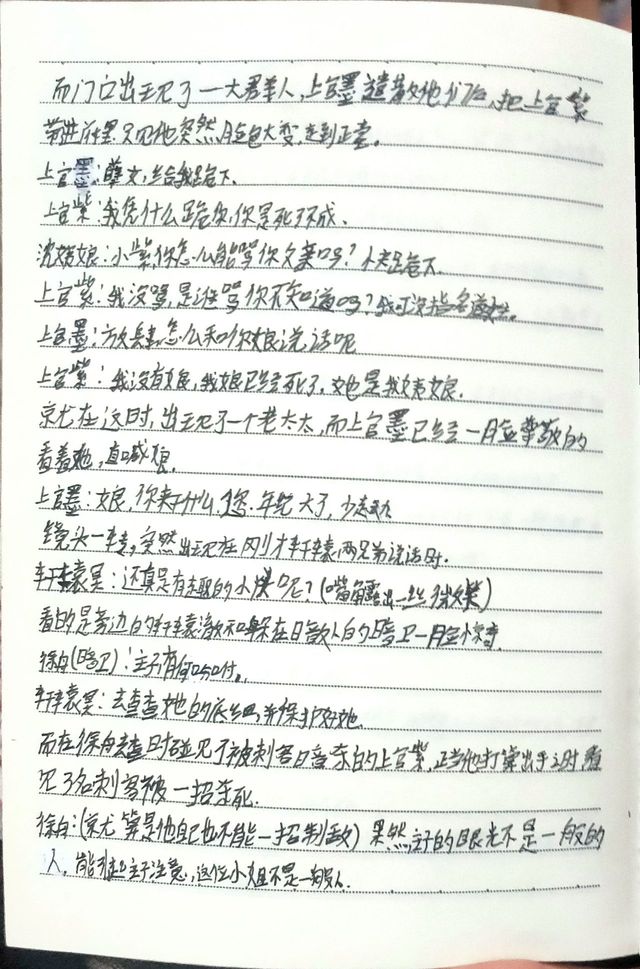 而门口出现了一大君羊人，上官墨遣散他们后、把上官紫
带进府里只见他突然脸色大变，走到正堂。
上官墨：孽女，给我跪下、
上官紫：我凭什么跪你，你是死了不成、
沈姨娘：小紫你怎么能骂你父亲吗？快跪下、
上官紫：我没骂，是谁骂你不知道吗？我可没指名道姓。
上官墨：放肆怎么和你娘说话呢
上官紫：我没有娘，我娘已经死了，她是我姨娘．
就在这时，出现了一个老太太，而上官墨已经一脸尊敬的
看着她，直喊娘．
上官墨：娘，你来干什么，您年纪大了，少走动
镜头一转，突然出现在刚才轩辕两兄弟说话时．
轩辕昊：还真是有趣的小 呢？（嘴角露出一丝微笑）
看的是旁边的轩辕澈和躲在日音处的暗卫一脸
徐舟（暗卫）：主子有何吩咐。
轩辕昊：去查查她的底细，并保护好她．
而在徐舟去查时碰见了被刺客日音杀的上官紫，正当他打算出手之时看
见了名刺客被一招杀死．
徐舟：（就算是他自己也不能一招制敌）果然，主子的眼光不是一般的
人，能引起主子注意，这位小姐不是一般人．